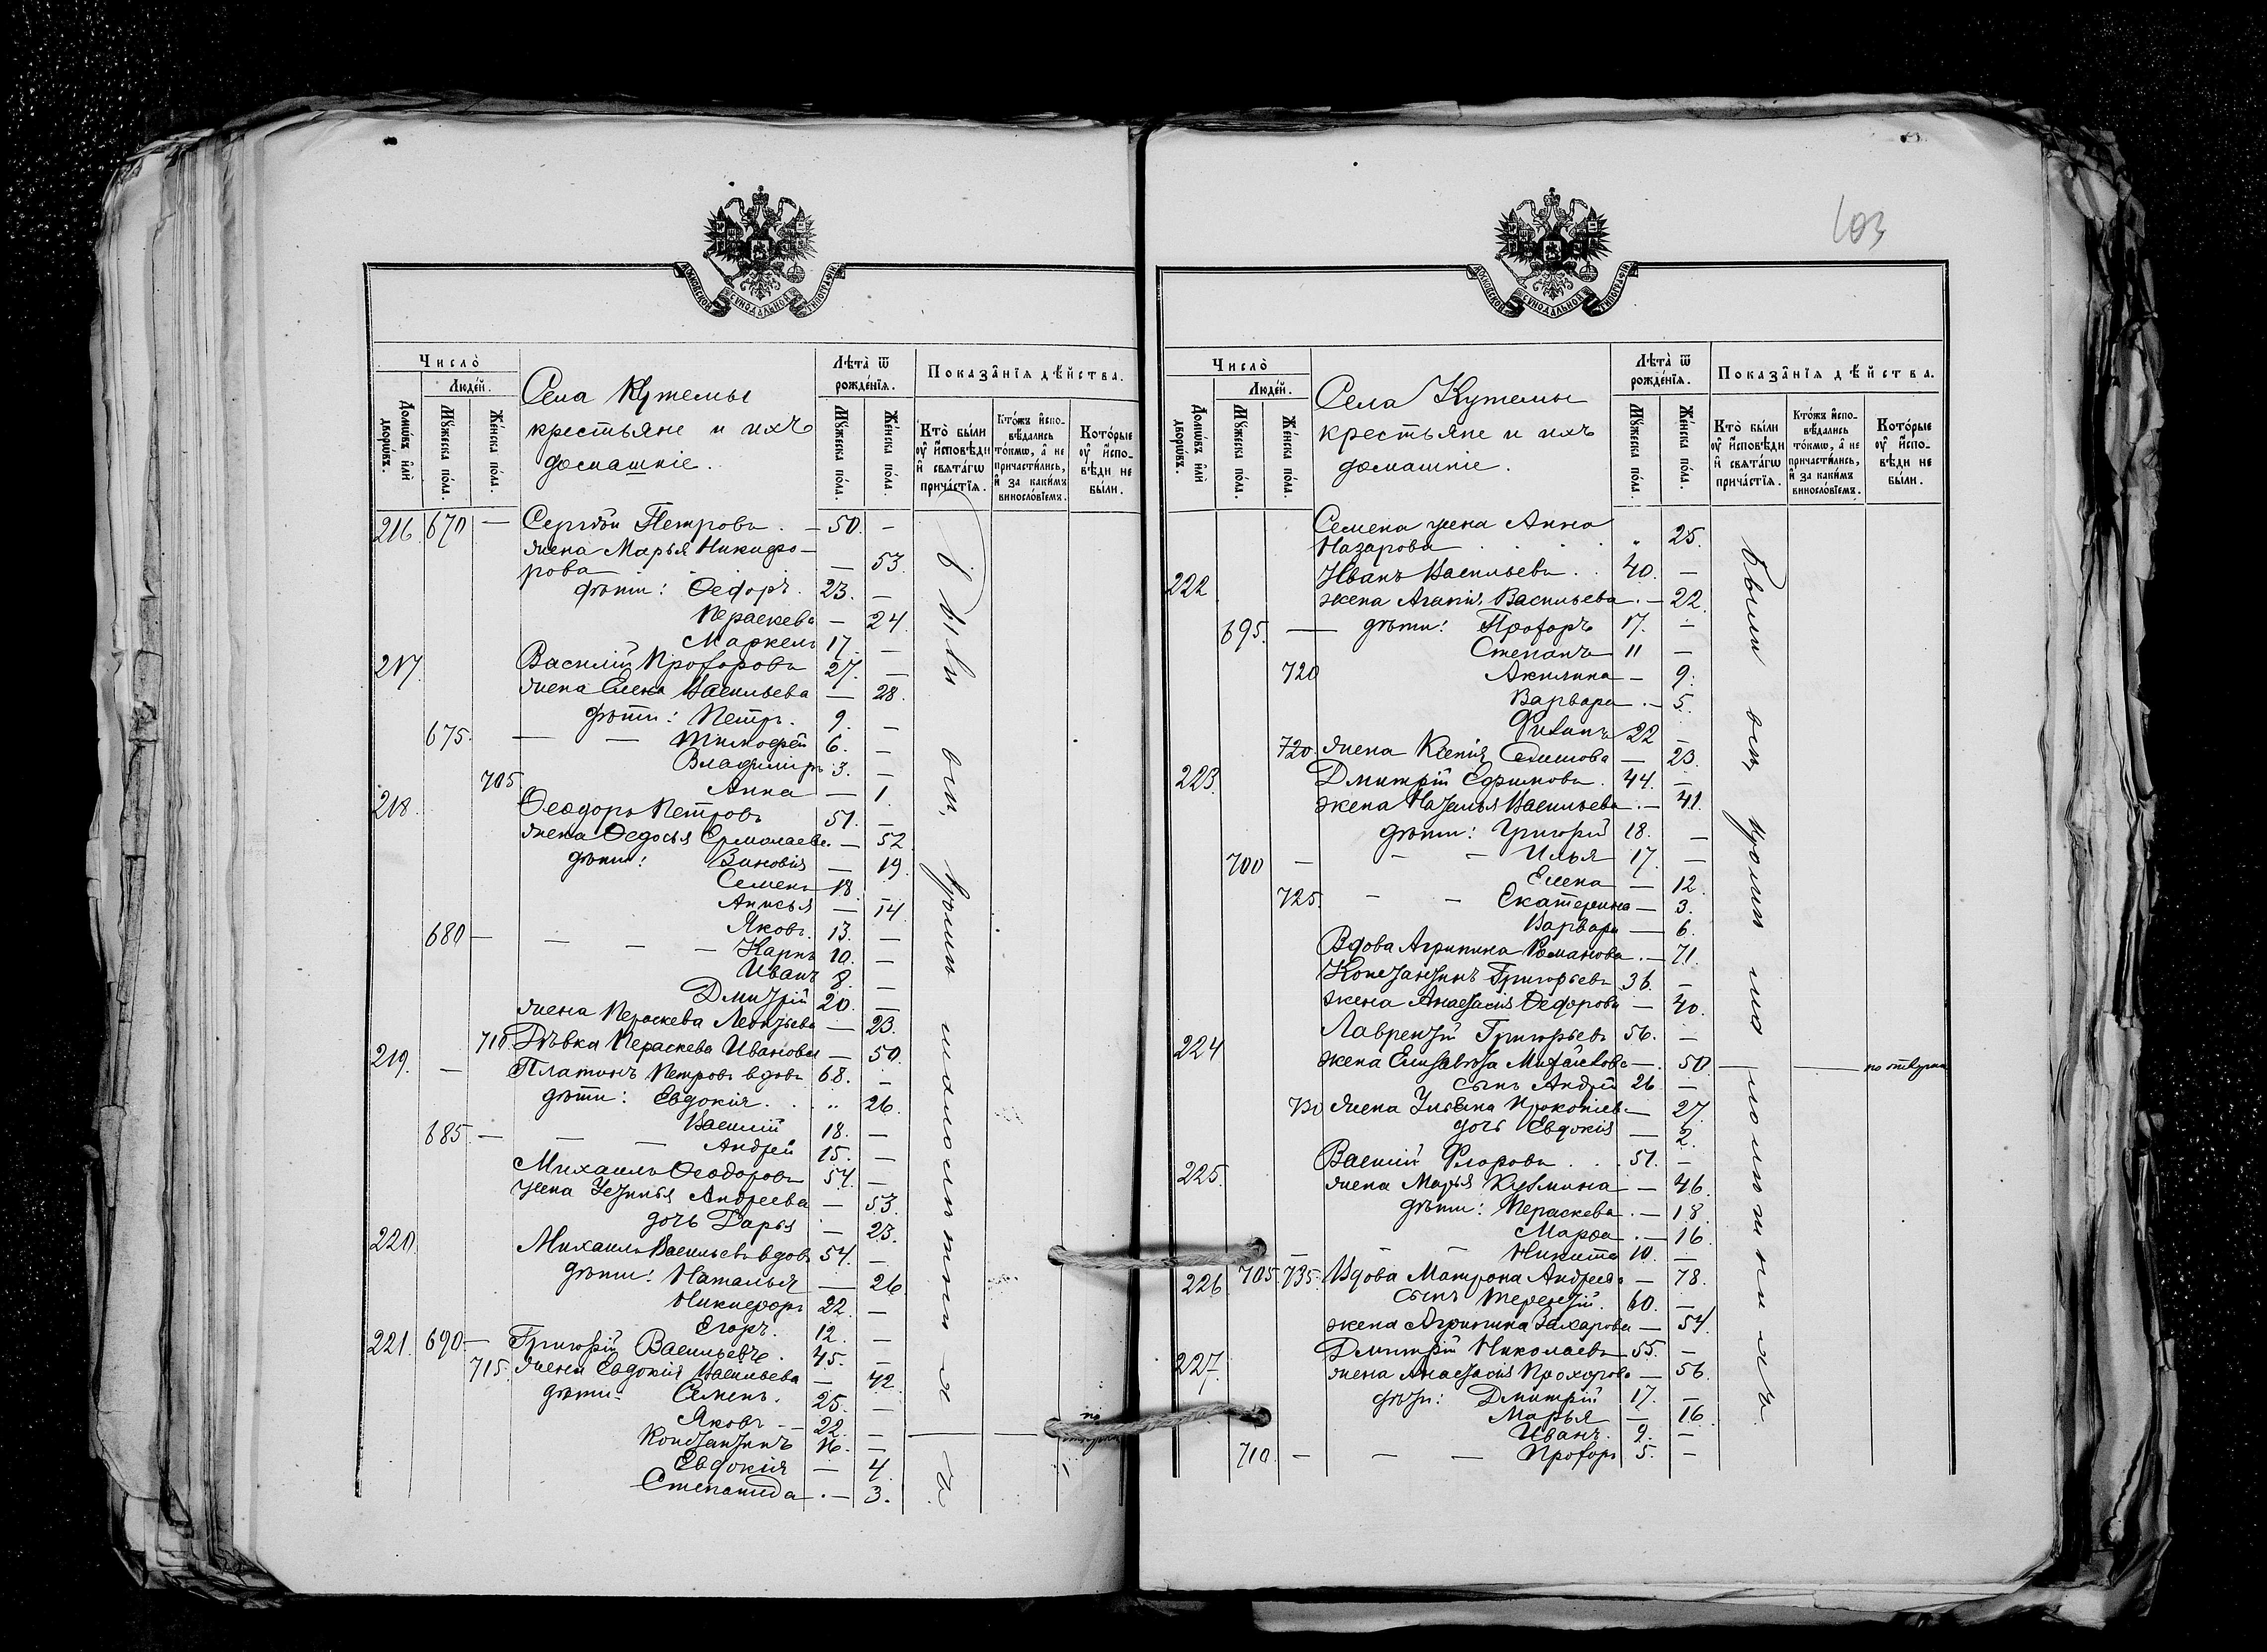 МОСКОВСКОЙ СѴНОДАЛЬНОЙ ТИПОГРАФІИ
Число̀
Людей.
Домѡвъ илѝ дворѡвъ.
Мꙋжеска пола.
Женска пола.
Села Кутемы
крестьяне и ихъ
домашніе.
Лѣта̀ ѿ рожденія.
Мꙋжеска пола.
Женска пола.
Показанія дѣйства.
Кто̀ были ᲂу҆ исповѣди и свѧтагѡ причастїѧ.
Ктожъ исповѣдались токмѡ, а не причастились, и за какимъ винословїемъ.
Которые ᲂу҆ исповѣди не были.
216 670 — Сергѣй Петровъ . — 50. —
жена Марья Никифо-
рова — 53.
дѣти: Ѳедоръ. 23. —
Пераскева — 24.
Маркелъ 17. —
217. Василій Прохоровъ 27. —
жена Елена Васильева — 28.
дѣти: Петръ. 9. —
675. — — Тимофей 6. —
Владиміръ 3. —
705 Анна — 1.
218. Ѳеодоръ Петровъ 51. —
жена Ѳедосья Ермолаева. — 52
дѣти: Зиновія — 19.
Семенъ 18. —
Анисья — 14.
Яковъ. 13. —
680 — — — — Карпъ 10. —
Иванъ 8. —
Дмитрій 20. —
жена Пераскева Леонтьева — 23.
710. Дѣвка Пераскева Иванова — 50.
219. — Платонъ Петровъ вдовъ 68. —
дѣти: Евдокія. . „ 26.
Василій 18. —
685. — — — Андрей 15. —
Михаилъ Ѳеодоровъ 54. —
жена Устинья Андреева — 53.
дочь Дарья — 23.
220. Михаилъ Васильевъ вдовъ 54. —
дѣти: Наталья — 26
Никифоръ 22. —
Егоръ. 12. —
221. 690 — Григорій Васильевъ. 45. —
715. жена Евдокія Васильева — 42.
дѣти: Семенъ. 25. —
Яковъ — 22. —
Константинъ 16. —
Евдокія — 4.
Степанида . — 3.
Были вси, кромѣ малолѣтнихъ
по
103
МОСКОВСКОЙ СѴНОДАЛЬНОЙ ТИПОГРАФІИ
Число̀
Людей.
Домѡвъ илѝ дворѡвъ.
Мꙋжеска пола.
Женска пола.
Села Кутемы
крестьяне и ихъ
домашніе.
Лѣта̀ ѿ рожденія.
Мꙋжеска пола.
Женска пола.
Показанія дѣйства.
Кто̀ были ᲂу҆ исповѣди и свѧтагѡ причастїѧ.
Ктожъ исповѣдались токмѡ, а не причастились, и за какимъ винословїемъ.
Которые ᲂу҆ исповѣди не были.
Семена жена Анна
Назарова . . . . „ 25.
222 Иванъ Васильевъ . . 40. —
жена Агапія Васильева . — 22.
695. — дѣти: Прохоръ 17. —
Степанъ 11 —
720 Акилина — 9.
Варвара . — 5.
22 —
720. жена Ксенія — 23.
223. Дмитрій Ефимовъ. 44. —
жена Наталья Васильева . — 41.
дѣти: Григорій 18. —
700 — — — Илья 17. —
Елена — 12.
725. — — Екатерина — 3.
Варвара — 6.
Вдова Агрипина Романова . — 71.
Константинъ Григорьевъ 36. —
жена Анастасія Ѳедорова — 40.
224 Лаврентій Григорьевъ 56. —
жена Елизавета Михайлова — . 50 — — по отлучкѣ
сынъ Андрей 26 —
730 жена Ульяна Прокопіева — 27.
дочь Евдокія — 2.
225. Василій Флоровъ . . 51. —
жена Марья Кузмина — 46.
дѣти: Пераскева . — 18.
Марѳа . — 16.
— — — Никита 10. —
226. 705 735. Вдова Матрона Андреева — 78.
сынъ Терентій. 60. —
жена Агрипина Захарова — 54.
227. Дмитрій Николаевъ 55. —
жена Анастасія Прохорова — 56.
дѣти: Дмитрій 17. —
Марья — 16.
Иванъ. 9. —
710. — — — Прохоръ 5. —
Были вси, кромѣ малолѣтнихъ